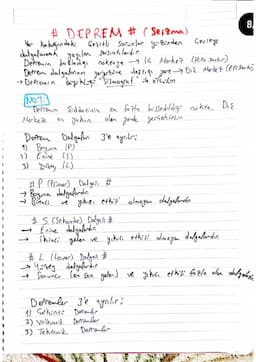 # DEPREM # (Seizma)
Yer kabuğundaki Çeşitli sorunlar yüzünden Geriye
dalgalanmalı yapılan sarsıntılardır.
Depremin başladığı noktaya → İç Merkez
Deprem dalgalarının yeryüzüne ulaştığı yer → Dış Merkez
→ Depremin büyüklüğü Sismograf ile ölçülür.
NOT:
Depremin Şiddetinin en fazla hissedildiği nokta, Dış
Merkeze en yakın olan yerleridir.
Deprem Dalgaları 3'e ayrılır;
1) Boyuna (P)
2) Enine (S)
3) Yüzey (L)
# P (Primer) Dalgası #
→ Boyuna dalgalardır.
→ Birinci ve yıkıcı etkisi olmayan dalgalardır.
# S (Sekonder) Dalgası #
→ Enine dalgalardır.
→ İkinci gelen ve yıkıcı etkisi olmayan dalgalardır.
# L (Lover) Dalgası #
→ Yüzey dalgalarıdır.
→ Sonuncu (en son gelen) ve yıkıcı etkisi fazla olan dalgalardır.
Depremler 3'e ayrılır;
1) Göküntü Depremler
2) Volkanik Depremler
3) Tektonik Depremler
8.